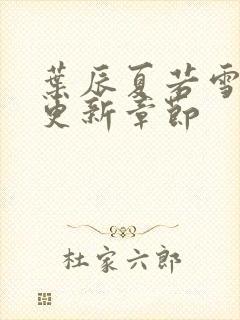 葉辰夏若雪
更新章節
杜家六郎